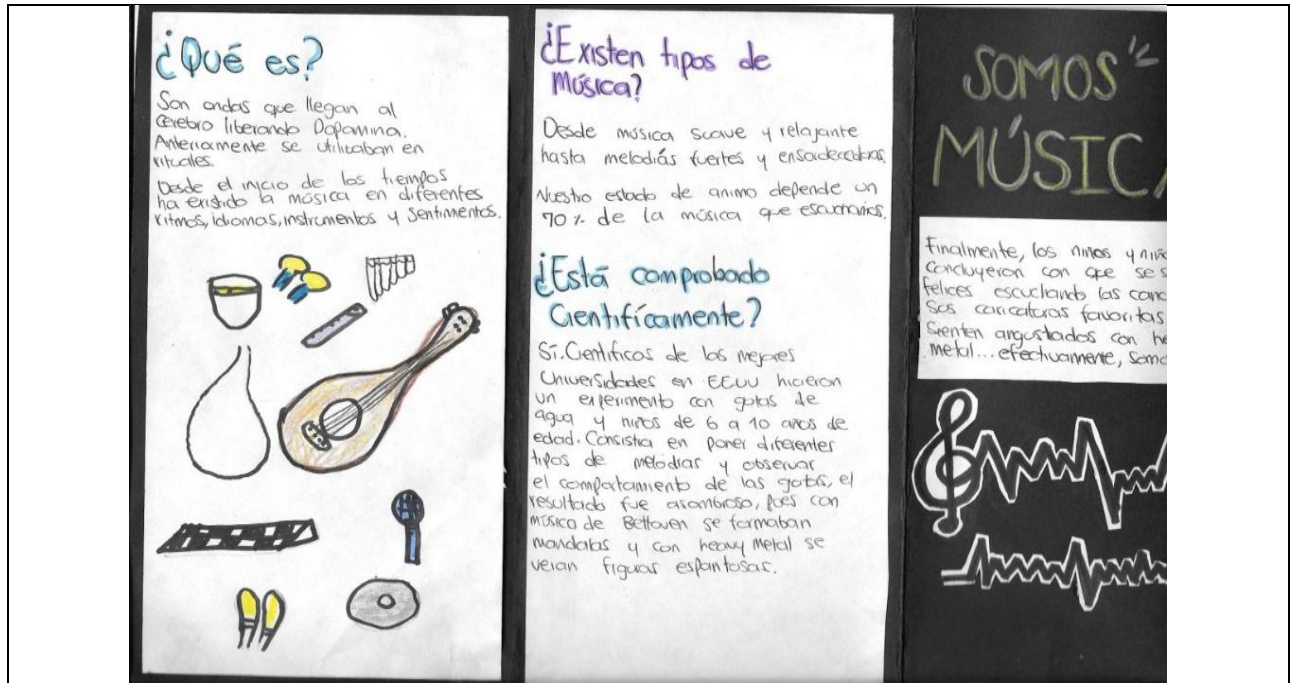 ¿Qué es?
Son ondas que llegan al
cerebro liberando Dopamina.
Anteriormente se utilizaban en
rituales.
Desde el inicio de los tiempos
ha existido la música en diferentes
ritmos, idiomas, instrumentos y sentimentos.
¿Existen tipos de
Música?
Desde música suave y relajante
hasta melodiás fuertes y ensordecedoras.
Nuestro estado de animo depende un
70% de la música que escuchamos.
¿Está comprobado
Científicamente?
Sí. Científicos de las mejores
Universidades en EEUU hicieron
un experimento con gotas de
agua y niños de 6 a 10 años de
edad. Consistia en poner diferentes
tipos de melodias y observar
el comportamiento de las gotas, el
resultado fue asombroso, pues con
música de Bettoven se formaban
mandalas y con heavy metal se
veian figuras espantosas.
SOMOS
MÚSIC
Finalmente, los niños y niñ
concluyeron con que se s
felices escuchando las canc
sus caricaturas favoritas
sienten angustiados con he
metal... efectivamente, somo